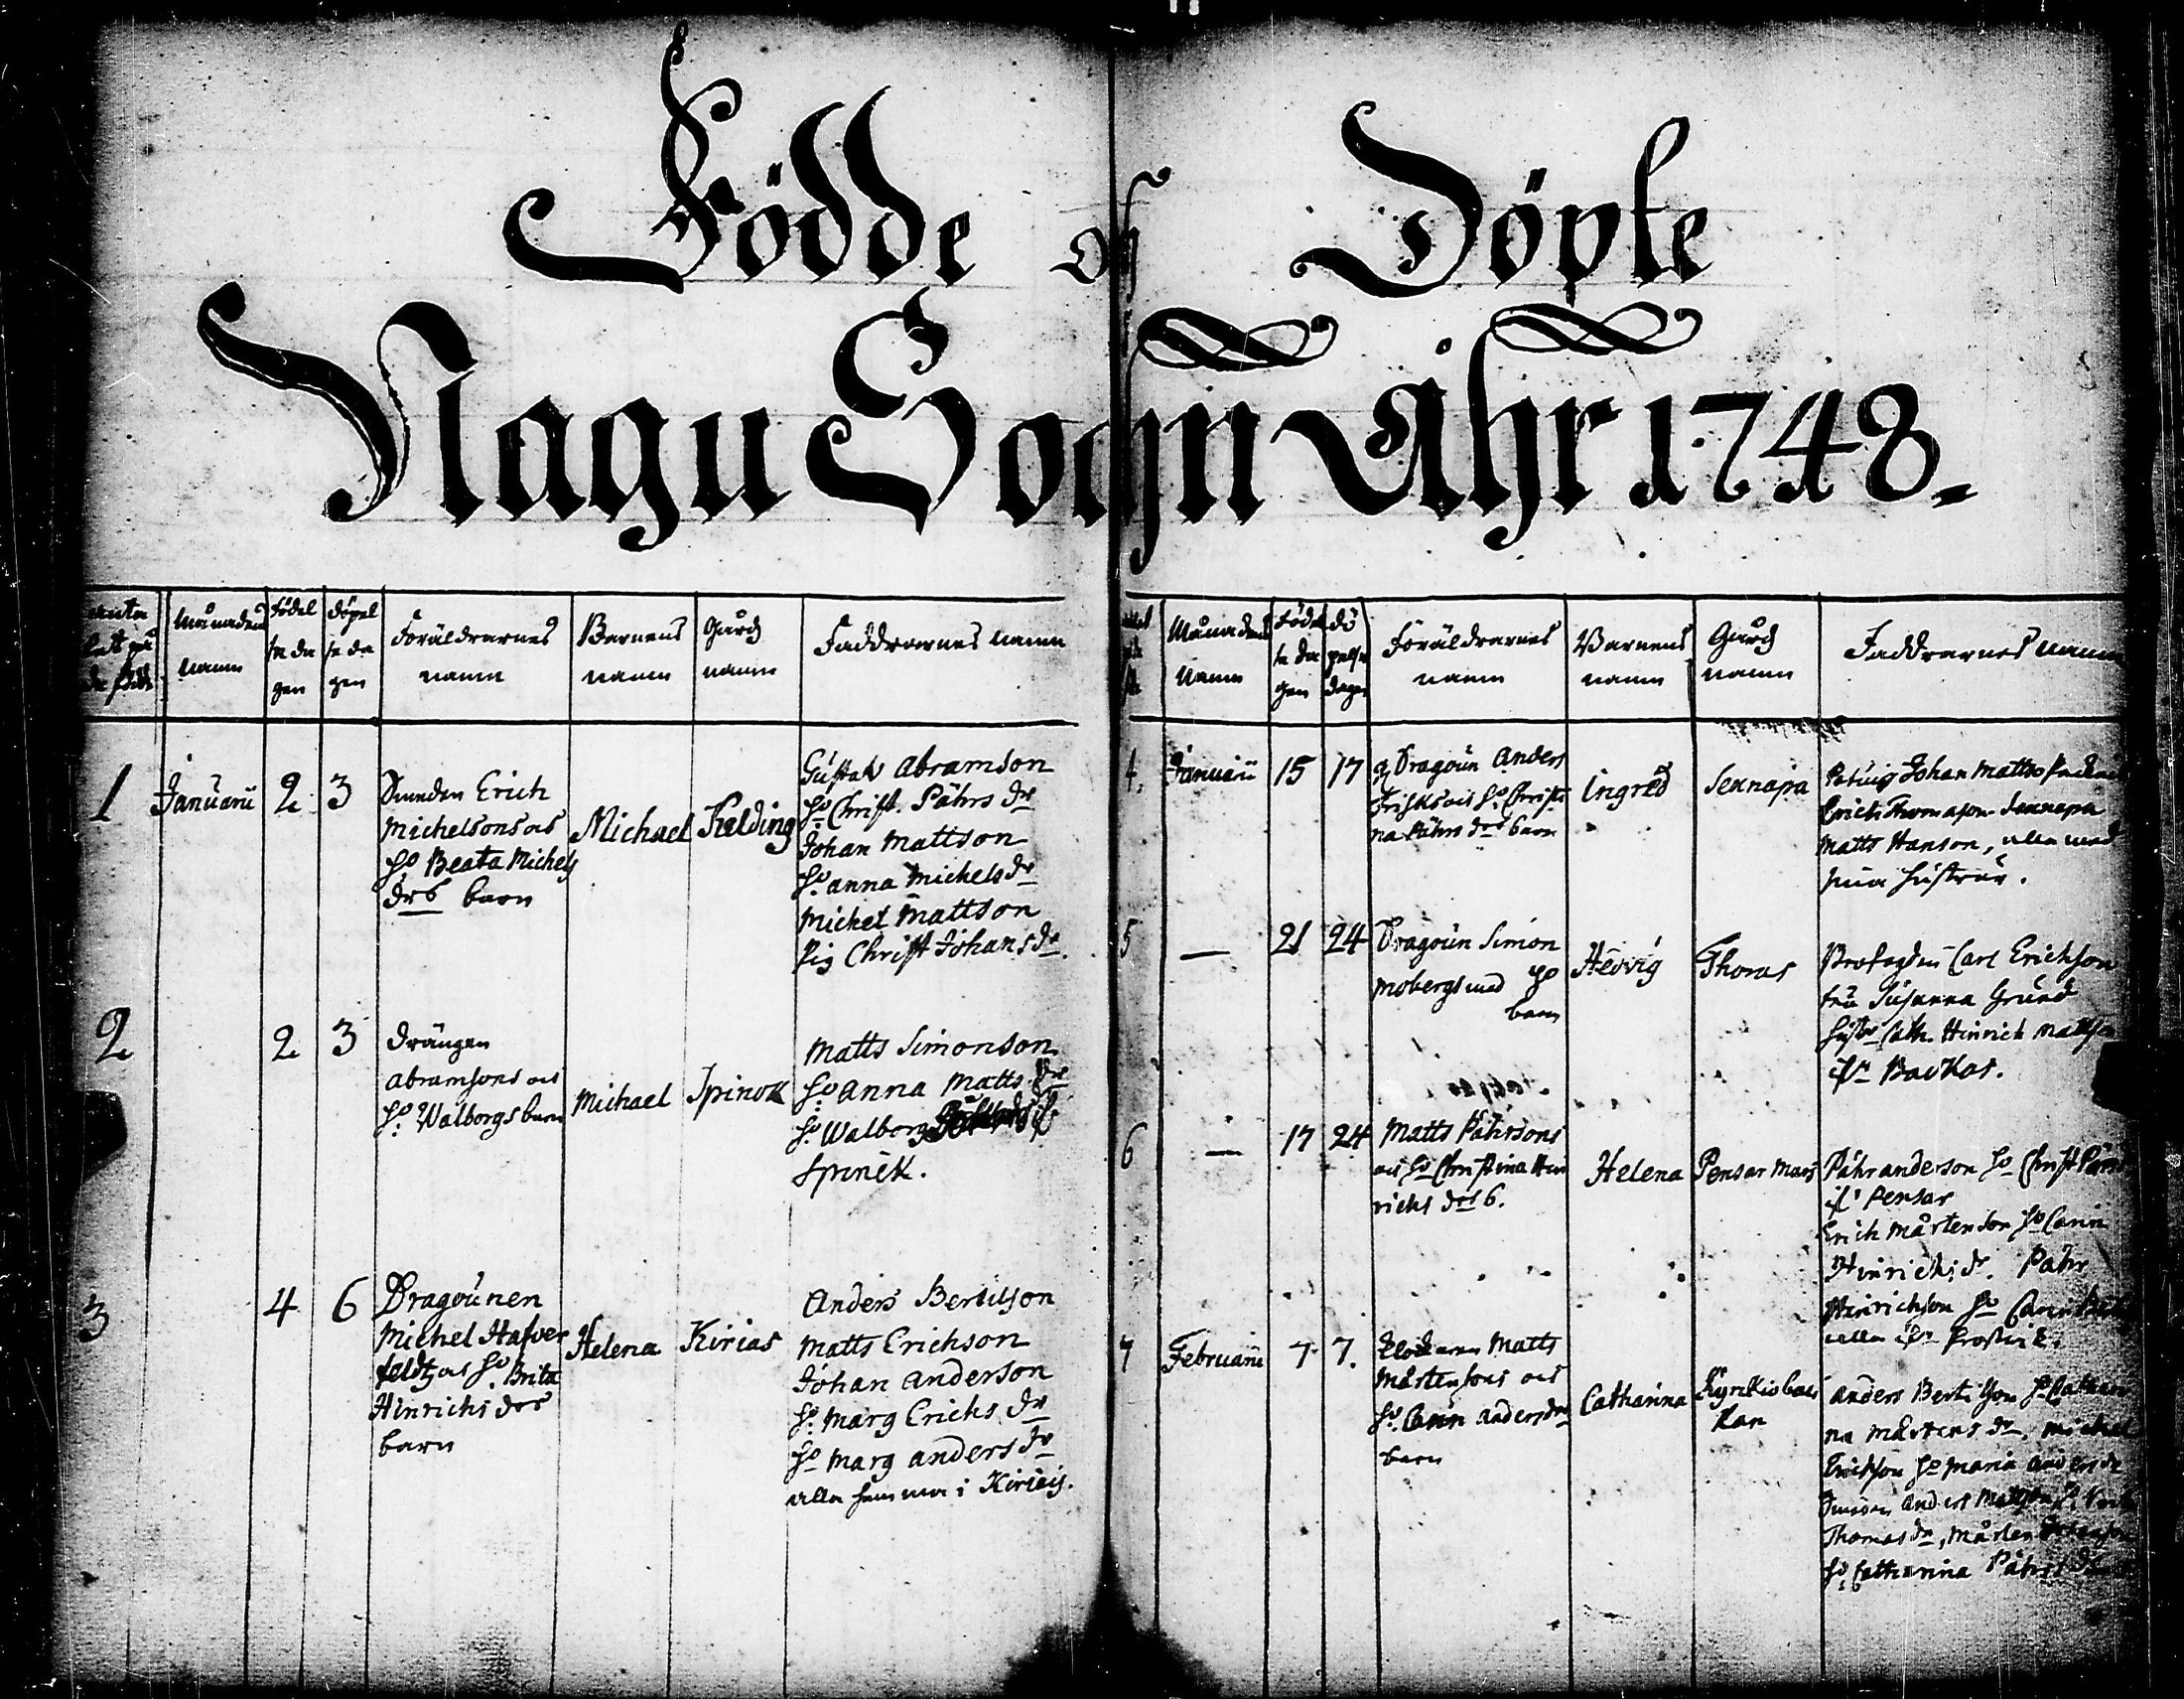 Födde och Döpte
Nagu Sochn Åhr 1748.
Månadens
namn
Födel
se da
gen
döpel
se da
gen
Föräldrarnes
namn
Barnens
namn
Gård
namn
Faddrarnes namn
1 Januarii 2 3
Smeden Erich
Michelsons os
Ho Beata Michels
drs barn
Michael Kalding
Gustav Abramson
Ho Christ. Pährs dr
Johan Mattson
Ho Anna Michels dr
Michel Mattson
Pig Christ Johans dr.
2 2 3
Drängen
Abramsons os
Ho Walborgs barn
Michael Spinok
Matts Simonson
Ho Anna Matts dr
Ho Walborg
Spinik.
3 4 6
Dragounen
Michel Hafver
feldtz os Ho Brita
Hinrichs drs
barn
Helena Kirias
Anders Bertilson
Matts Erichson
Johan Anderson
Ho Marg Erichs dr
Ho Marg Anders dr
alla hemma i Kiriais.
Månadens
namn
Födel
se da
gen
dö
pelse
dagen
Föräldrarnes
namn
Barnens
namn
Gård
namn
Faddrarnes namn
4. Januarii 15 17
Dragoun Anders
Frisks os Ho Christi
na Pährs drs barn
Ingred Sennapa
Johan Mattson
Erich Thomason Sennapa
Matts Hanson, alla med
sina hustrur.
5 — 21 24
Dragoun Simon
Mobergs med Ho
barn
Hedvig Thoras
Carl Erichson
fru Susanna Grund
Cath. Hinrich Mattson
Backas.
6 — 17 24
Matts Pährsons
os Ho Christina Hin
richs drs b.
Helena Pensar Mars
Pähr Anderson Ho Christ
Pensar
Erich Mårtenson Ho Carin
Hinrichs dr. Pähr
Hinrichson Ho Carin
alla Prostvik.
7 Februarii 7 7.
Klockaren Matts
Mårtensons os
Ho Carin Anders drs
barn
Catharina Kyrkiobac
kan
Anders Bertilson Ho Cathari
na Mårtens dr, Michel
Erichson Ho Maria Anders dr
Anders Matson
Thomas dr, Mårten
Ho Catharina Pährs dr